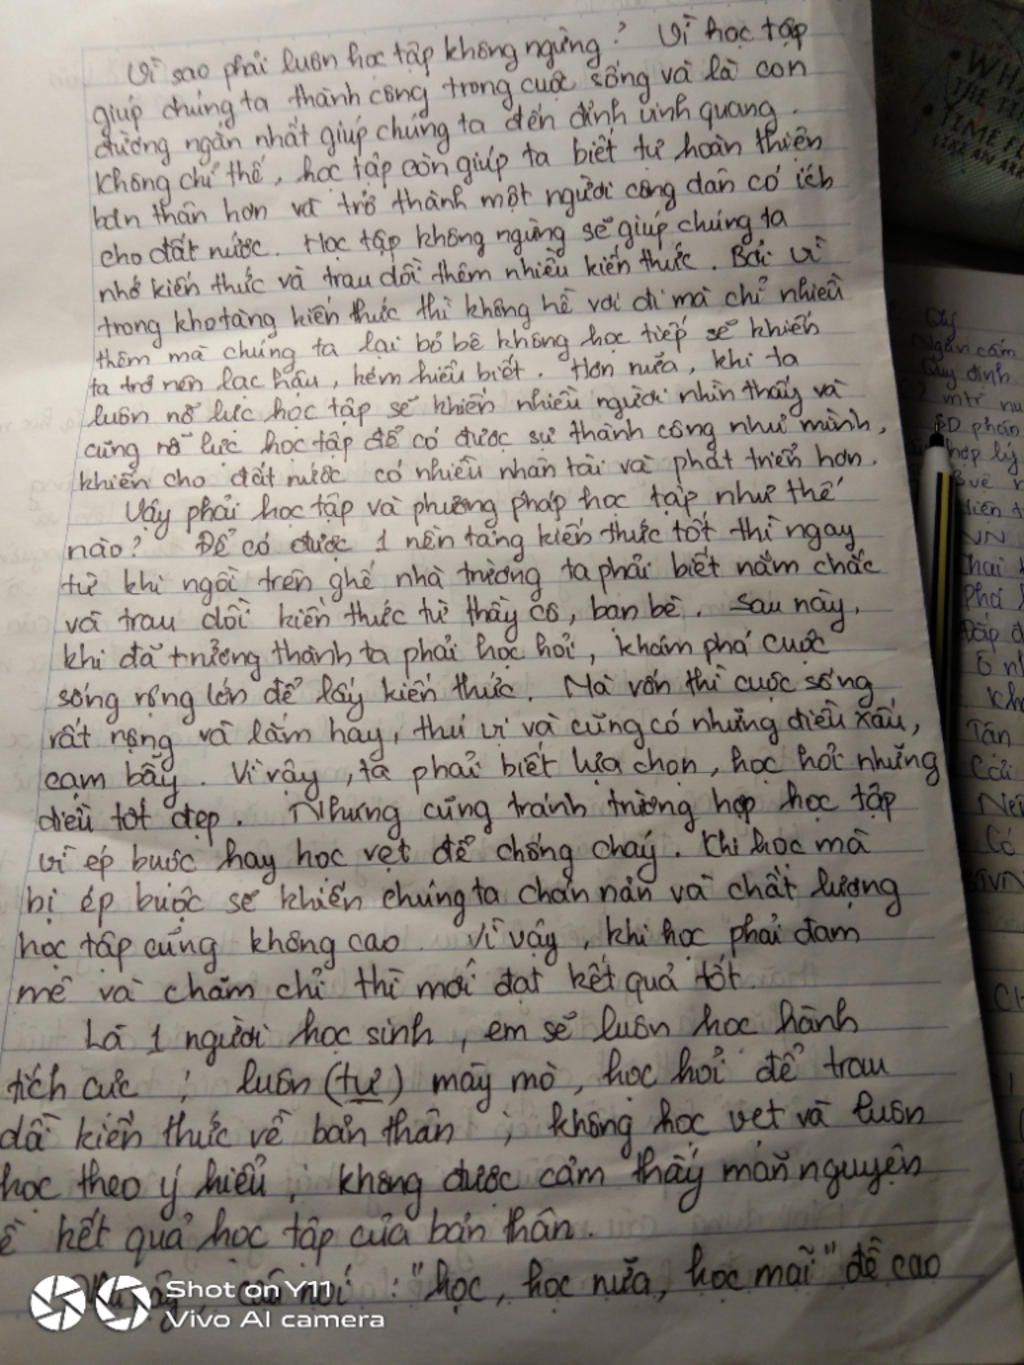 Vì sao phải luôn học tập không ngừng? Vì học tập
giúp chúng ta thành công trong cuộc sống và là con
đường ngắn nhất giúp chúng ta đến đỉnh vinh quang.
Không chỉ thế, học tập còn giúp ta biết tự hoàn thiện
bản thân hơn và trở thành một người công dân có ích
cho đất nước. Học tập không ngừng sẽ giúp chúng ta
nhớ kiến thức và trau dồi thêm nhiều kiến thức. Bởi vì
trong kho tàng kiến thức thì không hề vơi đi mà chỉ nhiều
thêm mà chúng ta lại bỏ bê không học tiếp sẽ khiến
ta trở nên lạc hậu, kém hiểu biết. Hơn nữa, khi ta
luôn nỗ lực học tập sẽ khiến nhiều người nhìn thấy và
cũng nỗ lực học tập để có được sự thành công như mình,
khiến cho đất nước có nhiều nhân tài và phát triển hơn.
Vậy phải học tập và phương pháp học tập như thế
nào? Để có được 1 nền tảng kiến thức tốt thì ngay
từ khi ngồi trên ghế nhà trường ta phải biết nắm chắc
và trau dồi kiến thức từ thầy cô, bạn bè. Sau này,
khi đã trưởng thành ta phải học hỏi, khám phá cuộc
sống rộng lớn để lấy kiến thức. Mà vốn thì cuộc sống
rất rộng và lắm hay, thú vị và cũng có những điều xấu,
cạm bẫy. Vì vậy, ta phải biết lựa chọn, học hỏi những
điều tốt đẹp. Nhưng cũng tránh trường hợp học tập
vì ép buộc hay học vẹt để chống cháy. Khi học mà
bị ép buộc sẽ khiến chúng ta chán nản và chất lượng
học tập cũng không cao. Vì vậy, khi học phải đam
mê và chăm chỉ thì mới đạt kết quả tốt.
Là 1 người học sinh, em sẽ luôn học hành
tích cực; luôn (tự) mày mò, học hỏi để trau
dồi kiến thức về bản thân; không học vẹt và luôn
học theo ý hiểu; không được cảm thấy mãn nguyện
ề kết quả học tập của bản thân.
câu nói: "học, học nữa, học mãi" đề cao
Shot on Y11
Vivo AI camera
WHA
THE TI
TIME F
LIKE AN ARR
Quy
Ngăn cấm
Quy định
phán
hợp lý
VN
Tân
Cải
Có